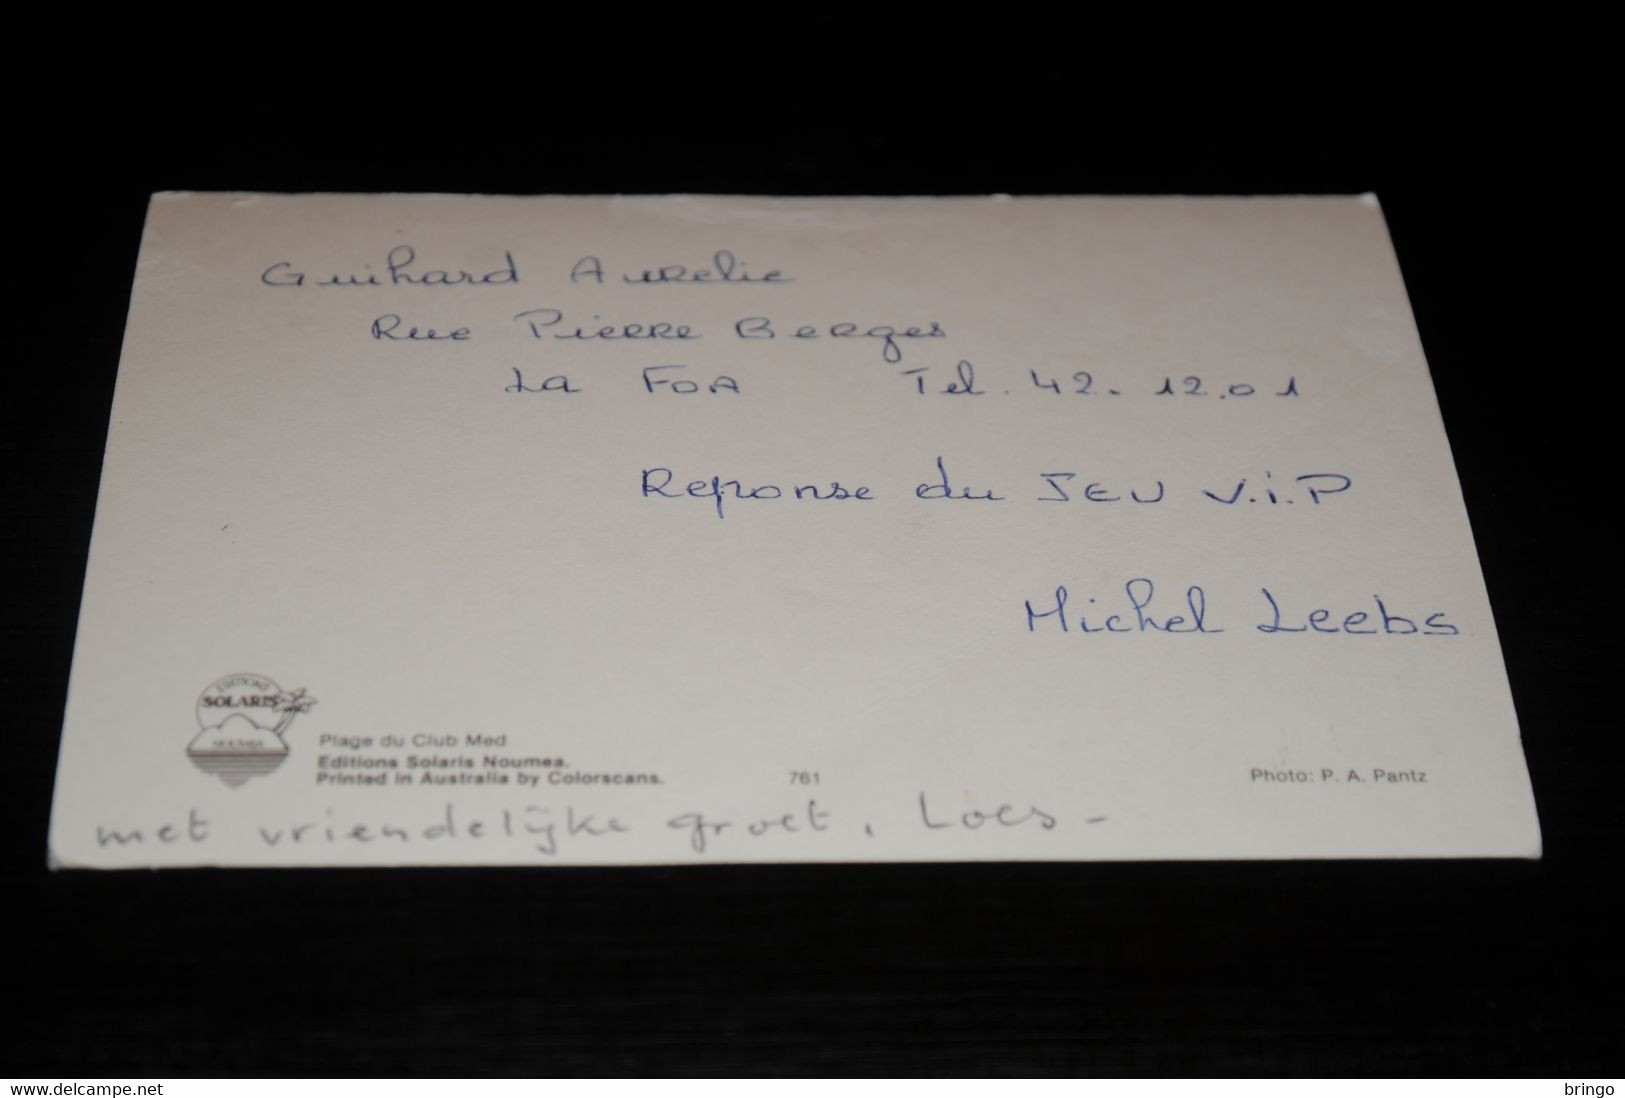 Guihard Aurelie
Rue Pierre Berges
La Foa Tel. 42. 12.01
Reponse du JEU V.i.P
Michel Leebs
EDITIONS
SOLARIS
NOUMEA
Plage du Club Med
Editions Solaris Noumea.
Printed in Australia by Colorscans.
761
Photo: P. A. Pantz
met vriendelijke groet, Loes -
www.delcampe.net
bringo